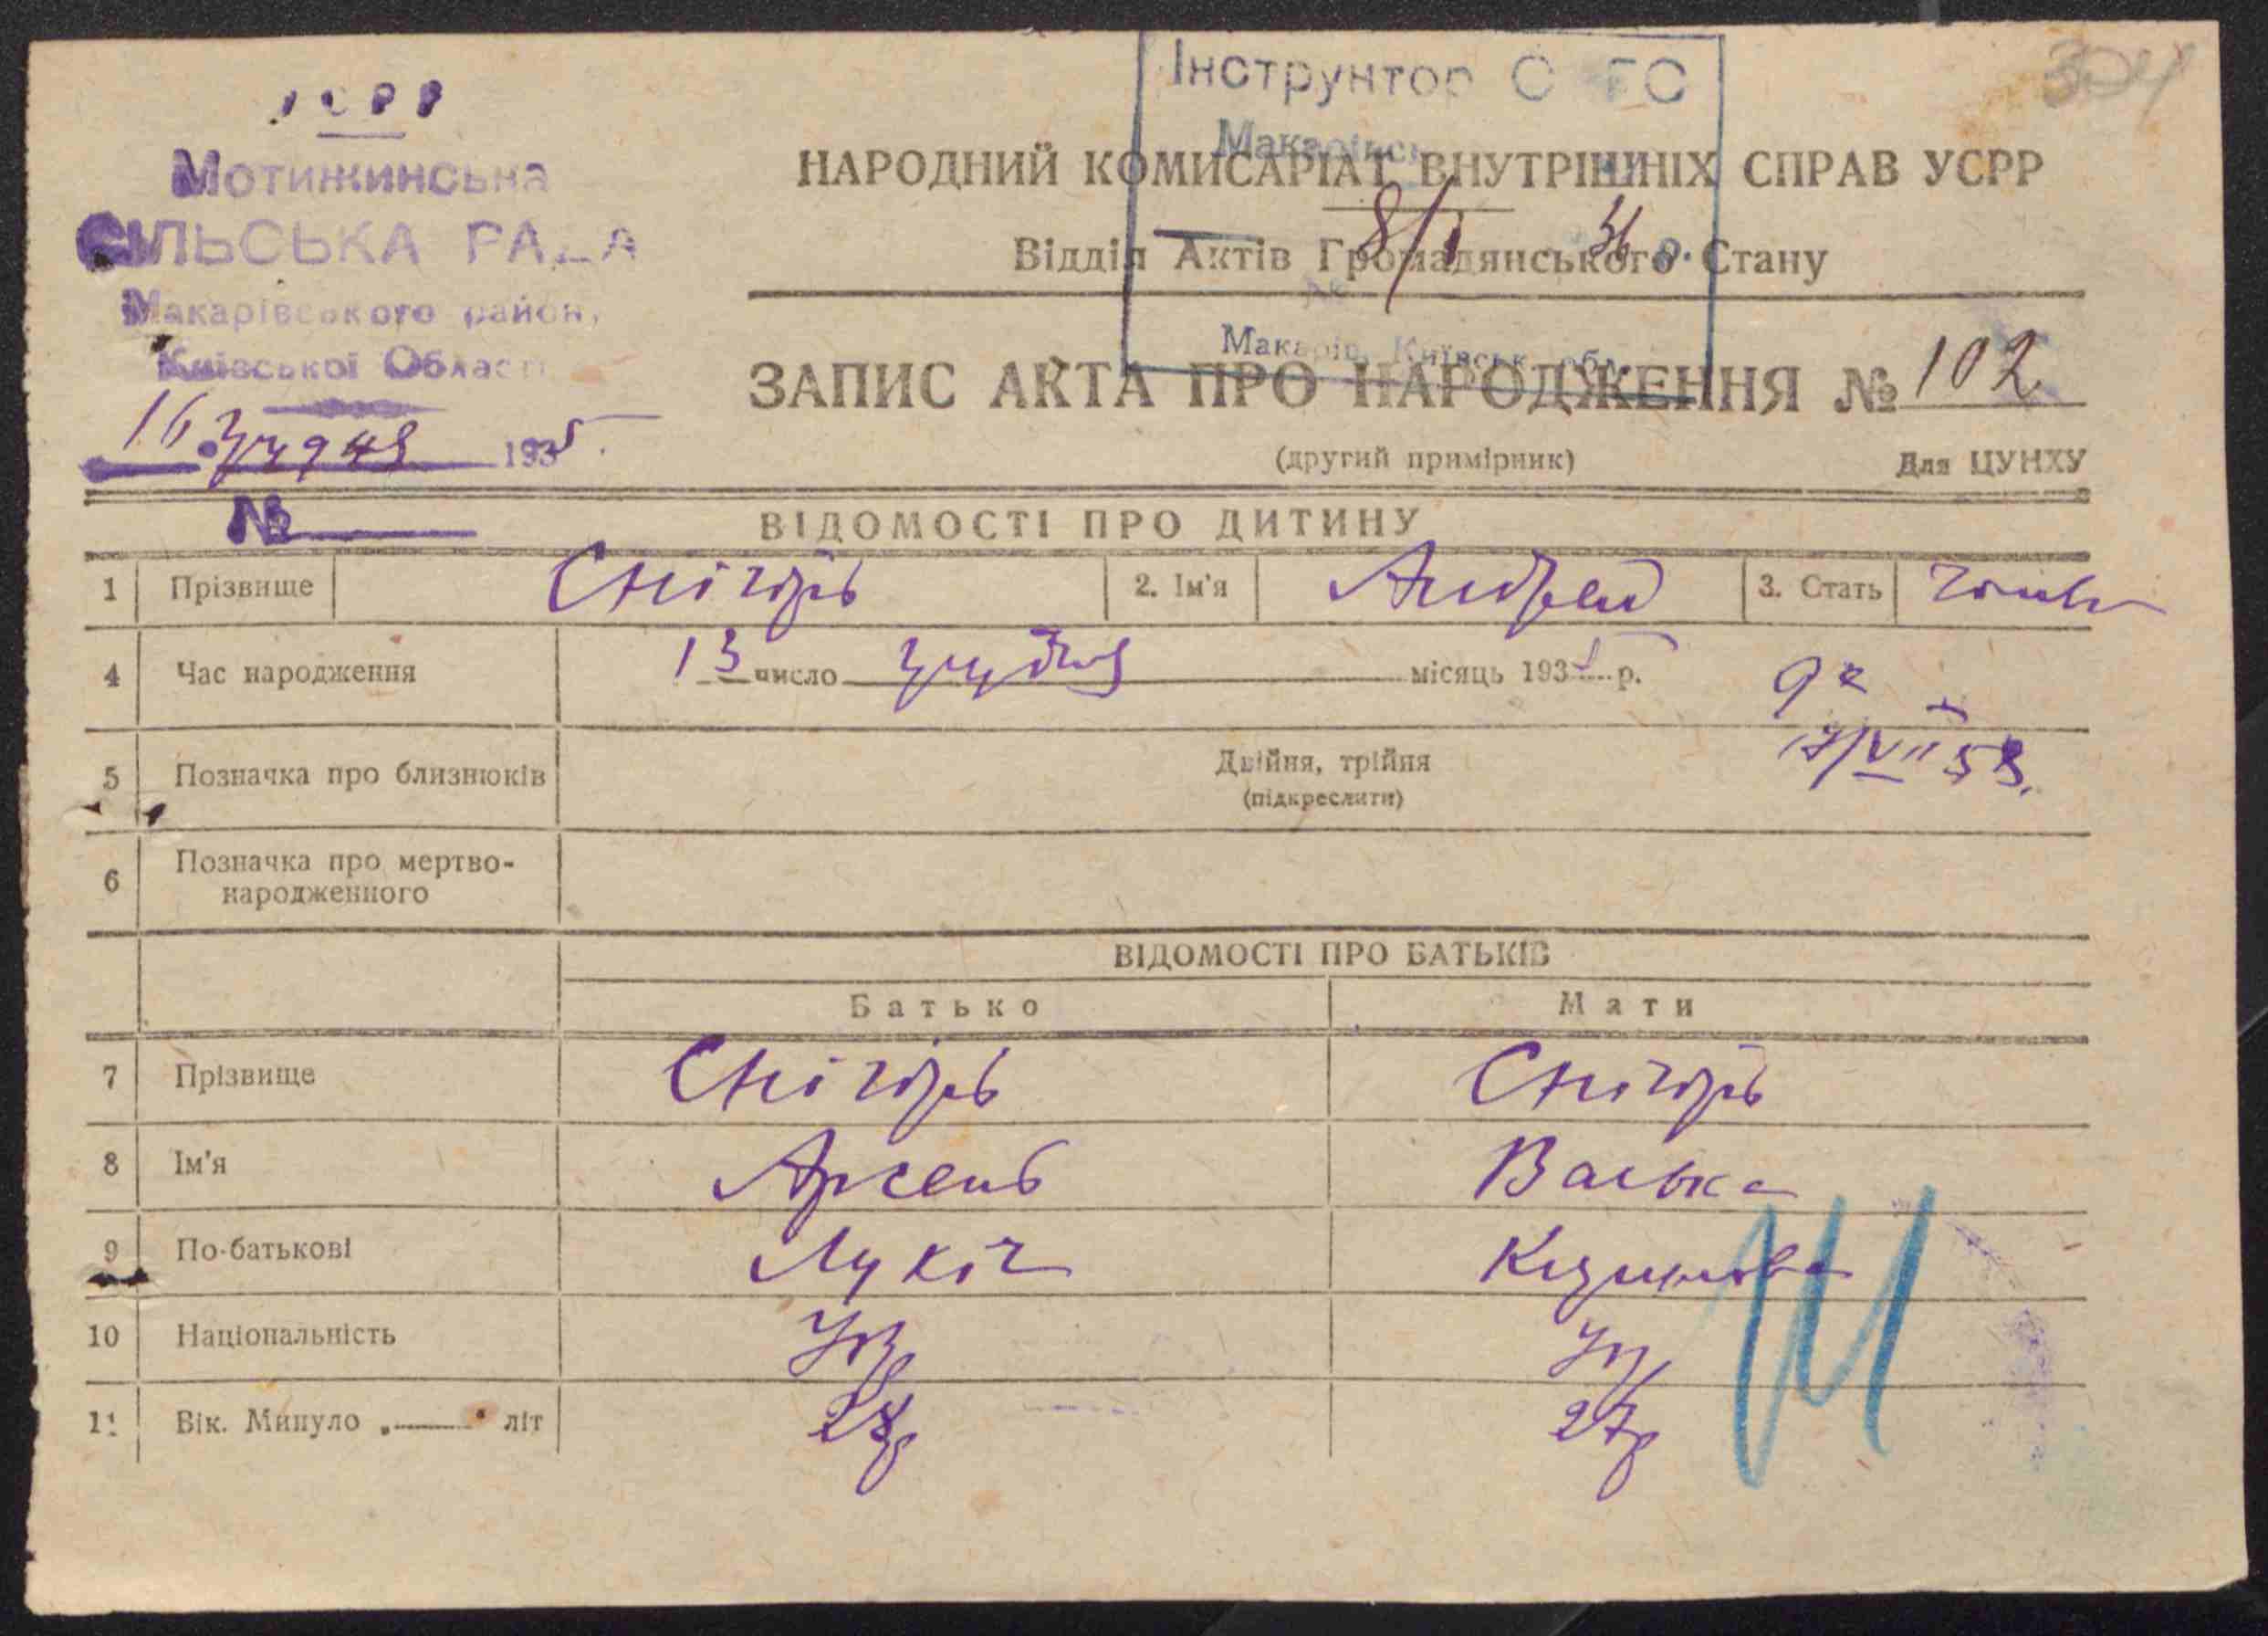 УСРР
Мотижинська
СІЛЬСЬКА РАДА
Макарівського район.
Київської Області
16 грудня 1935
№
Інструктор
8/I 36 р.
Макарів, Київськ. обл.
304
НАРОДНИЙ КОМИСАРІАТ ВНУТРІШНІХ СПРАВ УСРР
Відділ Актів Громадянського Стану
ЗАПИС АКТА ПРО НАРОДЖЕННЯ № 102
(другий примірник) Для ЦУНХУ
ВІДОМОСТІ ПРО ДИТИНУ
1 Прізвище Снігирь 2. Ім'я Андрей 3. Стать
4 Час народження 13 число грудня місяць 1935 р.
5 Позначка про близнюків Двійня, трійня
(підкреслити)
6 Позначка про мертво-
народженного
ВІДОМОСТІ ПРО БАТЬКІВ
Батько Мати
7 Прізвище Снігирь Снігирь
8 Ім'я Арсень Васька
9 По-батькові Лукіч
10 Національність Укр Укр
11 Вік. Минуло „ " літ 28р 27р